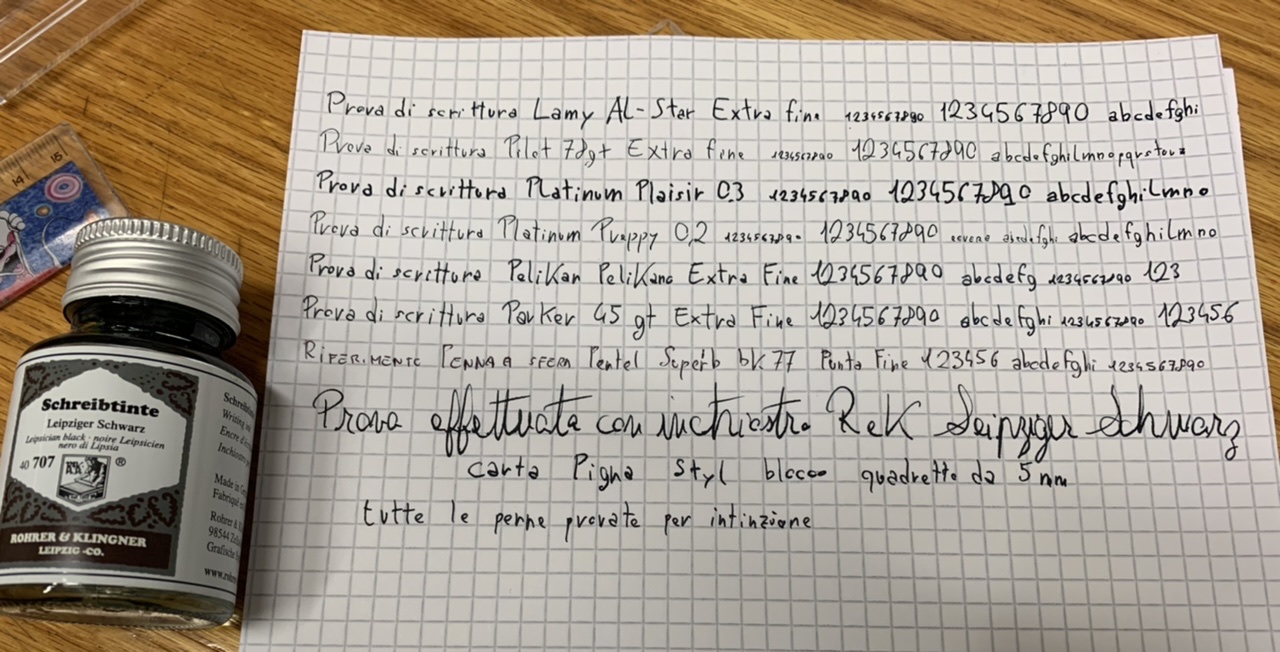 Prova di scrittura Lamy AL-Star Extra fine 1234567890 1234567890 abcdefghi
Prova di scrittura Pilot 78gt Extra fine 1234567890 1234567890 abcdefghilmnopqrstovz
Prova di scrittura Platinum Plaisir 0.3 1234567890 1234567890 abcdefghilmno
Prova di scrittura Platinum Preppy 0,2 1234567890 1234567890 abcdefghi abcdefghilmno
Prova di scrittura Pelikan Pelikano Extra Fine 1234567890 abcdefg 1234567890 123
Prova di scrittura Parker 45 gt Extra Fine 1234567890 abcdefghi 1234567890 123456
RIFERIMENTO PENNA A SFERA Pentel Superb bk 77 Punta Fine 123456 abcdefghi 1234567890
Prova effettuata con inchiostro ReK Leipziger Schwarz
carta Pigna Styl blocco quadretto da 5 mm
tutte le penne provate per intinzione
Schreibtinte
Leipziger Schwarz
Leipsician black · noire Leipsicien
nero di Lipsia
40 707
R&K ®
ROHRER & KLINGNER
LEIPZIG -CO.
Writing
Encre
Made in
Rohrer &
98544
www.
14 15